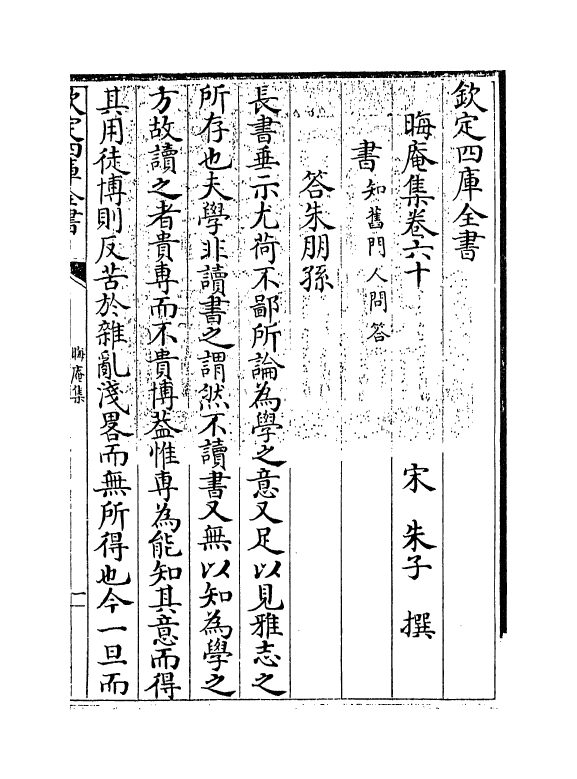 欽定四庫全書
晦庵集卷六十　宋　朱子　撰
書知舊門人問答
答朱朋孫
長書垂示尤荷不鄙所論為學之意又足以見雅志之
所存也夫學非讀書之謂然不讀書又無以知為學之
方故讀之者貴専而不貴博葢惟専為能知其意而得
其用徒博則反苦於雜亂淺畧而無所得也今一旦而
欽定四庫全書
晦庵集
一